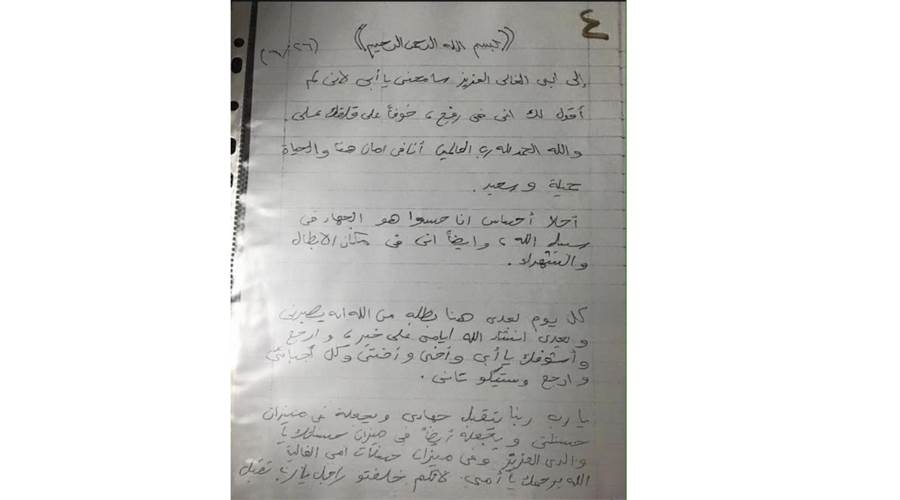 ٤
((بسم الله الرحمن الرحيم)) (٦/٢٦)
إلى ابي الغالي العزيز سامحني يا أبي لاني لم
أقول لك اني في رفح، خوفاً على قلقك علي
والله الحمدلله رب العالمين أنا في امان هنا والحياة
جميلة و سعيد.
أحلا أحساس انا حسوا هو الجهاد في
سبيل الله، وايضاً اني في مكان الابطال
والشهداء.
كل يوم بعدي هنا بطلب من الله انه يصبرني
و يعدي انشاء الله ايامي على خير، و ارجع
وأشوفك يا أبي و أخي و أختي وكل أحبابي
و ارجع وستيكو تاني.
يا رب ربنا يتقبل جهادي و يجعله في ميزان
حسناتي و يجعله أيضاً في ميزان حسناتك يا
والدي العزيز وفي ميزان حسنات امي الغالية
الله يرحمك يا أمي. لانكم خلفتو راجل يا رب تقبل